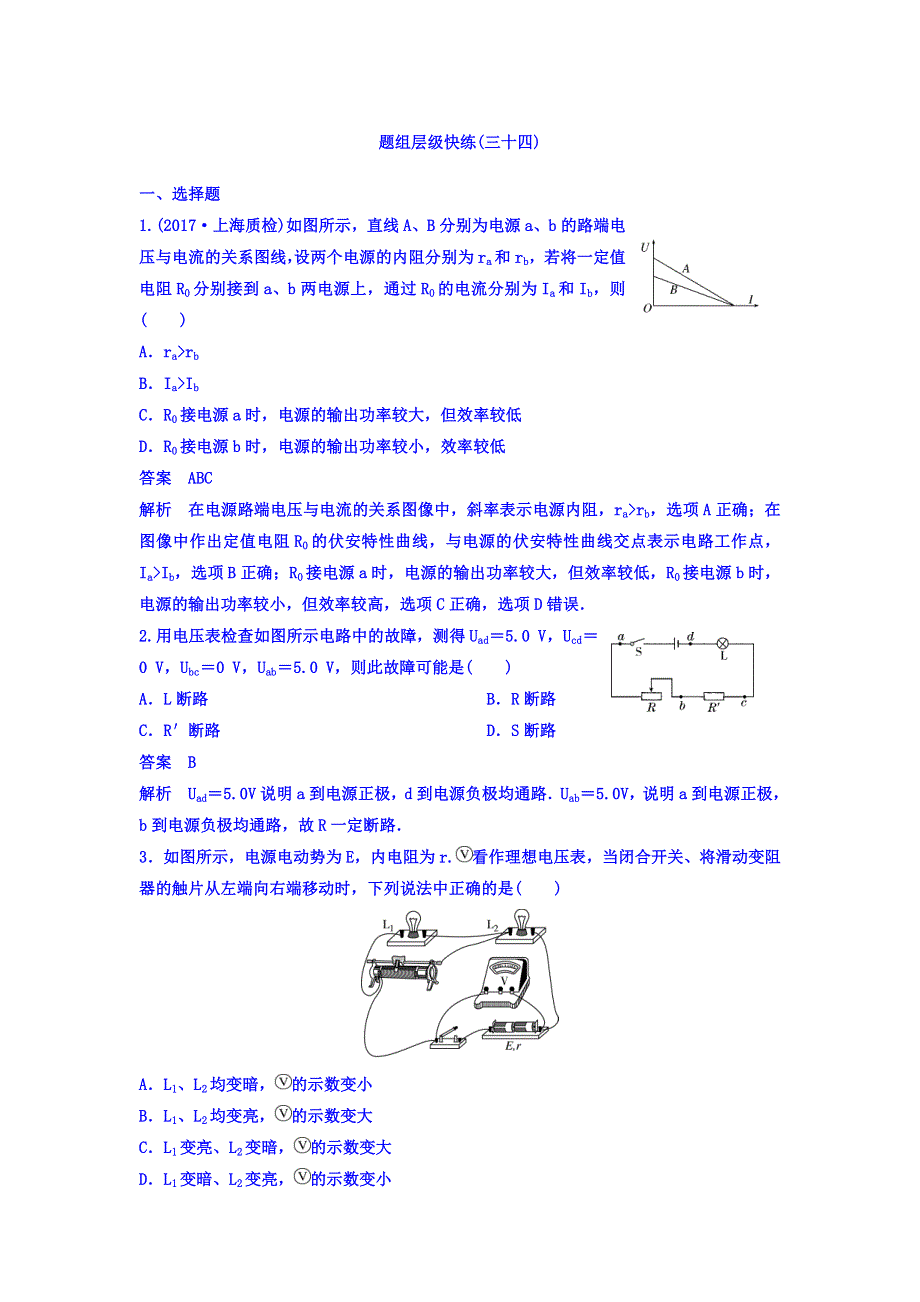 题组层级快练(三十四)
一、选择题
1.(2017·上海质检)如图所示，直线A、B分别为电源a、b的路端电
压与电流的关系图线，设两个电源的内阻分别为ra和rb，若将一定值
电阻R0分别接到a、b两电源上，通过R0的电流分别为Ia和Ib，则
(　　)
U
A
B
O
I
A．ra>rb
B．Ia>Ib
C．R0接电源a时，电源的输出功率较大，但效率较低
D．R0接电源b时，电源的输出功率较小，效率较低
答案　ABC
解析　在电源路端电压与电流的关系图像中，斜率表示电源内阻，ra>rb，选项A正确；在
图像中作出定值电阻R0的伏安特性曲线，与电源的伏安特性曲线交点表示电路工作点，
Ia>Ib，选项B正确；R0接电源a时，电源的输出功率较大，但效率较低，R0接电源b时，
电源的输出功率较小，但效率较高，选项C正确，选项D错误．
2.用电压表检查如图所示电路中的故障，测得Uad＝5.0 V，Ucd＝
0 V，Ubc＝0 V，Uab＝5.0 V，则此故障可能是(　　)
a S d L
R b R′ c
A．L断路　　B．R断路
C．R′断路　　D．S断路
答案　B
解析　Uad＝5.0V说明a到电源正极，d到电源负极均通路．Uab＝5.0V，说明a到电源正极，
b到电源负极均通路，故R一定断路．
3．如图所示，电源电动势为E，内电阻为r.Ⓥ看作理想电压表，当闭合开关、将滑动变阻
器的触片从左端向右端移动时，下列说法中正确的是(　　)
L1 L2
V
E,r
A．L1、L2均变暗，Ⓥ的示数变小
B．L1、L2均变亮，Ⓥ的示数变大
C．L1变亮、L2变暗，Ⓥ的示数变大
D．L1变暗、L2变亮，Ⓥ的示数变小